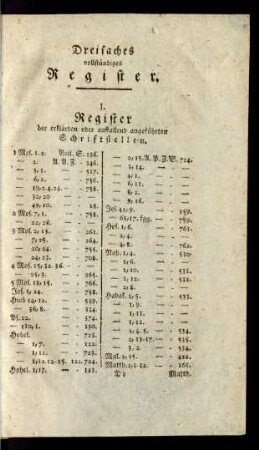 Dreifaches
vollständiges
Register.
I.
Register
der erklärten oder auffallend angeführten
Schriftstellen.
1 Mos. 1. 2. Brit. S. 126.
— 2. A. P. Z. - 346.
— 3, 1. — - 517.
— 6, 2. — - 756.
— 19, 2. 4. 24. — - 758.
— 32, 20
— 49, 10. — - 18.
2 Mos. 7, 1. — - 758.
— 22, 28.
3 Mos. 2, 15. — - 261.
— 7, 25. — - 264.
— 20, 25. — - 258.
— 24, 23. — - 708.
4 Mos. 15, 32. 36.
— 25, 3. — - 265.
5 Mos. 18, 15. — - 761.
Jos. 5, 24. — - 758.
Hiob 14, 12. — - 539.
— 36, 8. — - 334.
Pf. 22. — - 374.
— 120, 1. — - 530.
Hohel. — - 723.
— 1, 7. — - 122.
— 1, 11. — - 723.
— 1, 12. 14. 15. 122. 724.
Hohel. 1, 17. — - 123.
— 2, 15. A. P. Z. S. 724.
— 3, 14. — -
— 4, 1. — -
— 6, 11. — -
— 8, 2. — -
— 8, 16. — -
Jes. 42, 9. — - 159.
— 65, 17. fgg. — - 759.
Hos. 1, 6. — - 761.
— 4, 8. — -
— 6, 2. — - 762.
Nah. 1, 4. — - 530.
— 1, 6.
— 1, 10. — - 531.
— 1, 12. — - 532.
— 2, 8. — -
Habak. 1, 5. — - 533.
— 1, 9. — -
— 1, 11. — -
— 1, 12. — -
— 2, 4. 5. — - 534.
— 2, 15-17. — - 535.
— 3, 2. — - 534.
Mal. 2, 15. — - 422.
Matth. 2, 1-12. — - 165.
Matth.